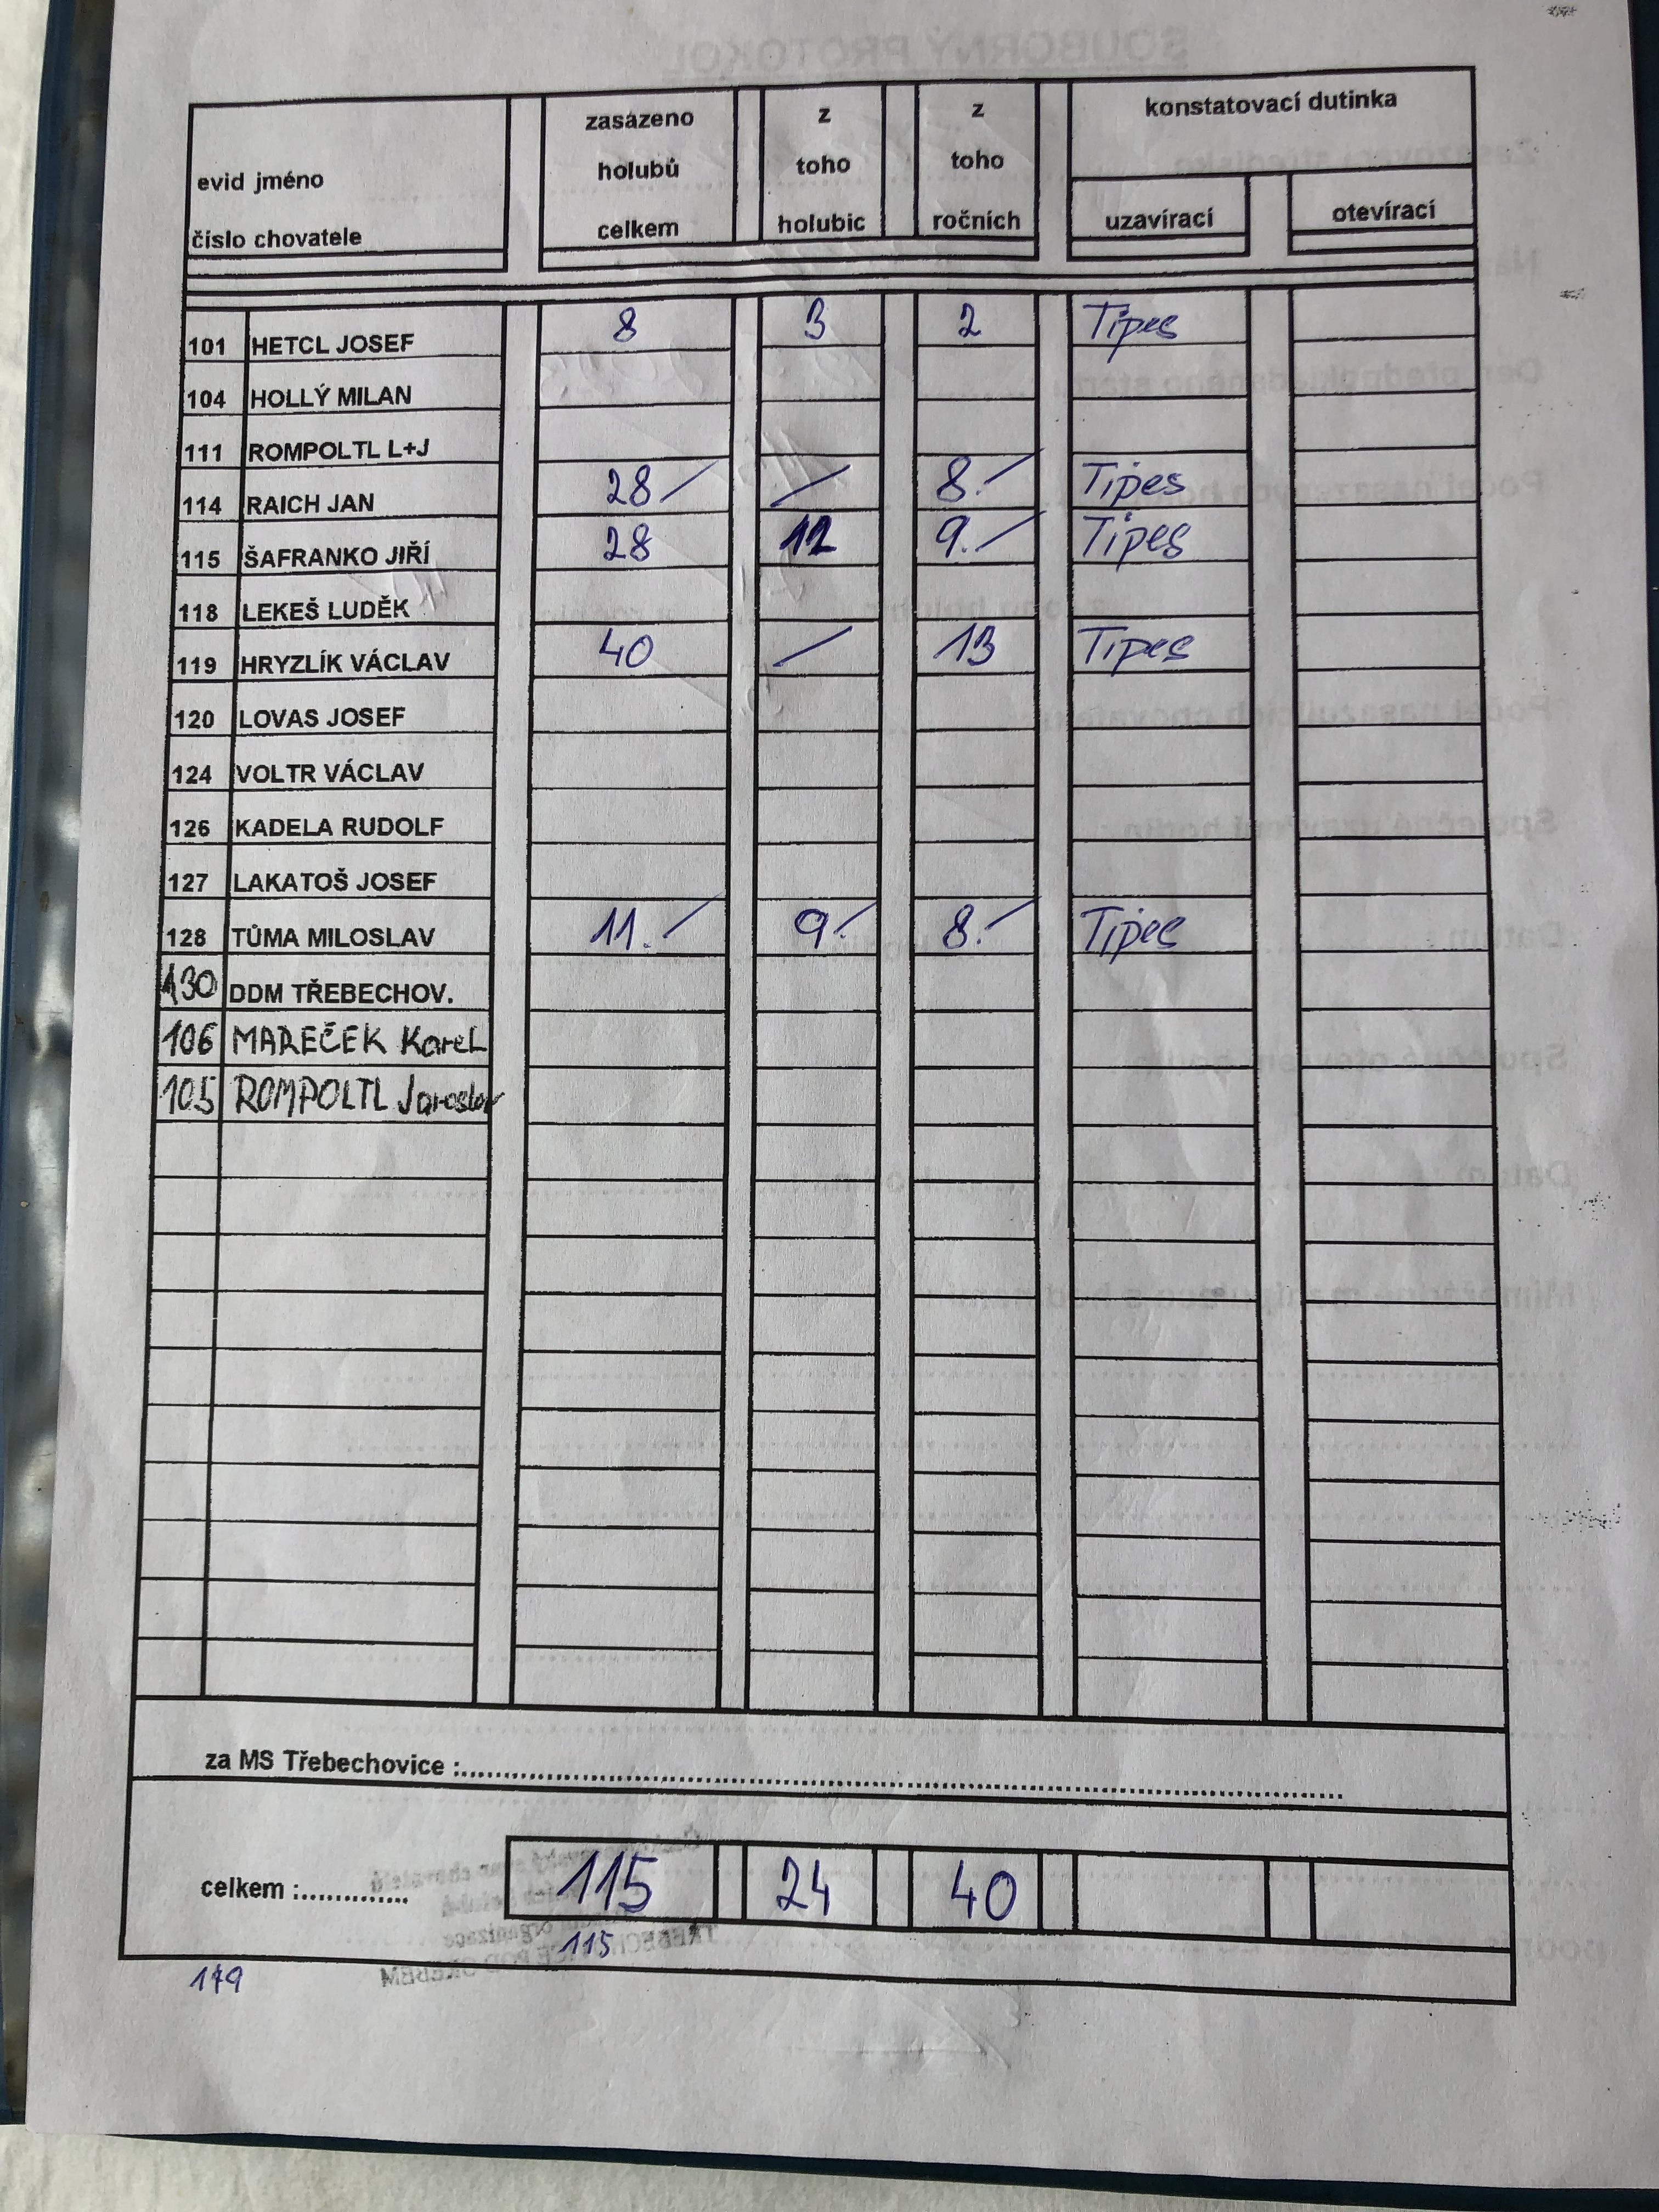 konstatovací dutinka
zasazeno z z
holubů toho toho
evid jméno
celkem holubic ročních uzavírací otevírací
číslo chovatele
101 HETCL JOSEF 8 3 2 Tipes
104 HOLLÝ MILAN
111 ROMPOLTL L+J
114 RAICH JAN 28 / / 8./ Tipes
115 ŠAFRANKO JIŘÍ 28 12 9./ Tipes
118 LEKEŠ LUDĚK
119 HRYZLÍK VÁCLAV 40 / 13 Tipes
120 LOVAS JOSEF
124 VOLTR VÁCLAV
126 KADELA RUDOLF
127 LAKATOŠ JOSEF
128 TŮMA MILOSLAV 11./ 9./ 8./ Tipes
130 DDM TŘEBECHOV.
106 MAREČEK Karel
105 ROMPOLTL Jaroslav
za MS Třebechovice :
celkem : 115 24 40
115
179